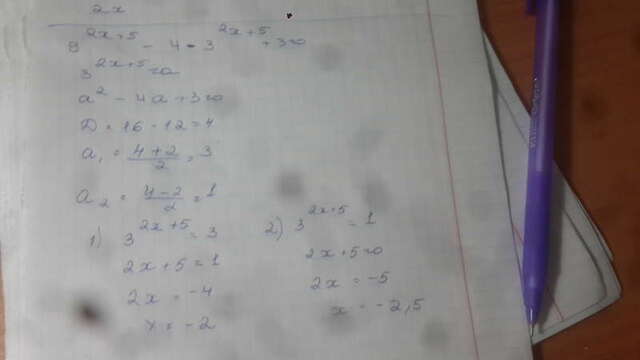 2x
9^{2x+5} - 4 · 3^{2x+5} + 3 = 0
3^{2x+5} = a
a² - 4a + 3 = 0
D = 16 - 12 = 4
a₁ = \frac{4+2}{2} = 3
a₂ = \frac{4-2}{2} = 1
1) 3^{2x+5} = 3
2x + 5 = 1
2x = -4
x = -2
2) 3^{2x+5} = 1
2x + 5 = 0
2x = -5
x = -2,5